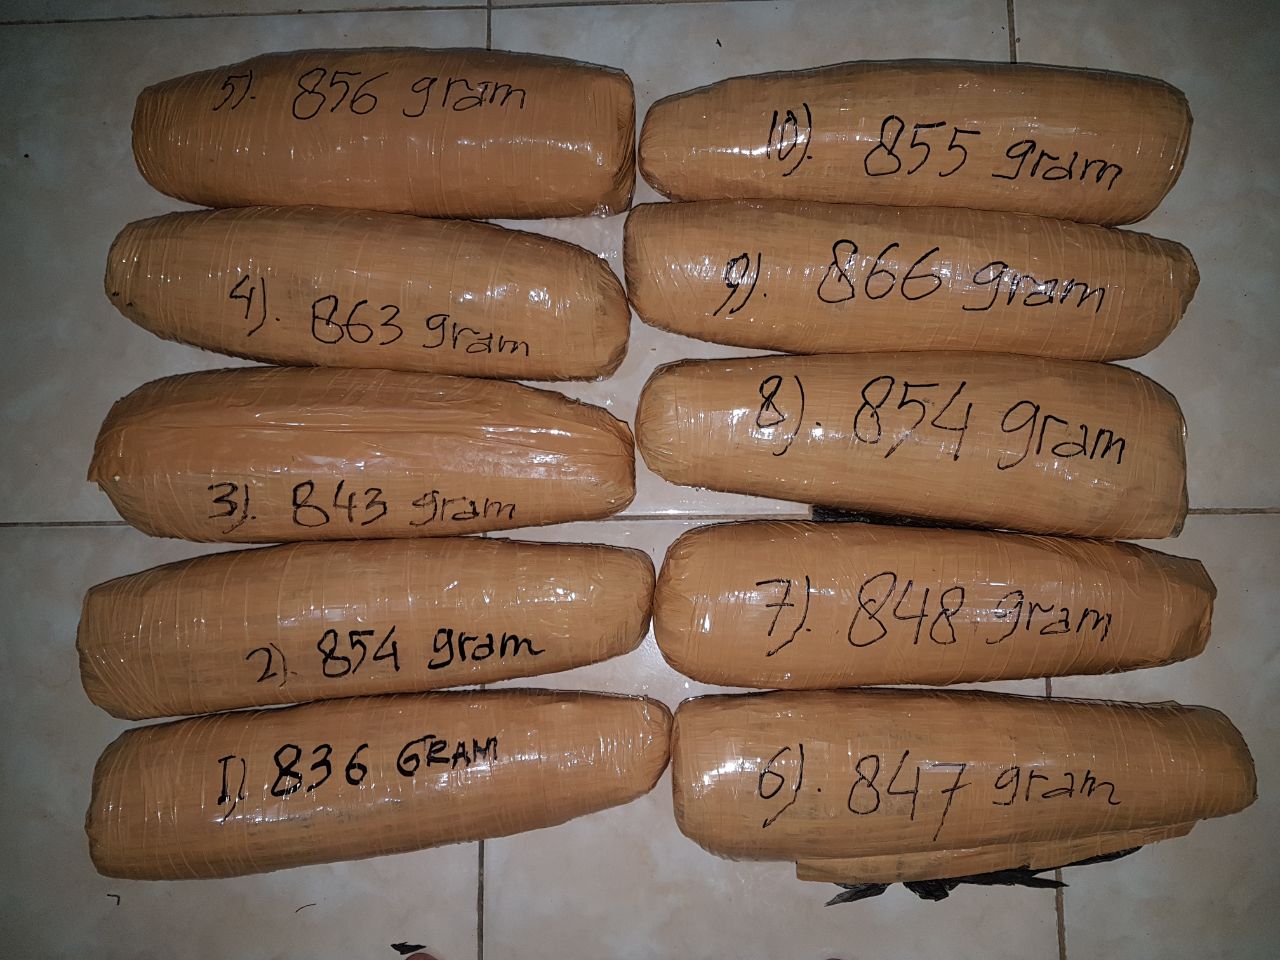 5). 856 gram
4). 863 gram
3). 843 gram
2). 854 gram
1) 836 GRAM
10). 855 gram
9). 866 gram
8). 854 gram
7). 848 gram
6). 847 gram